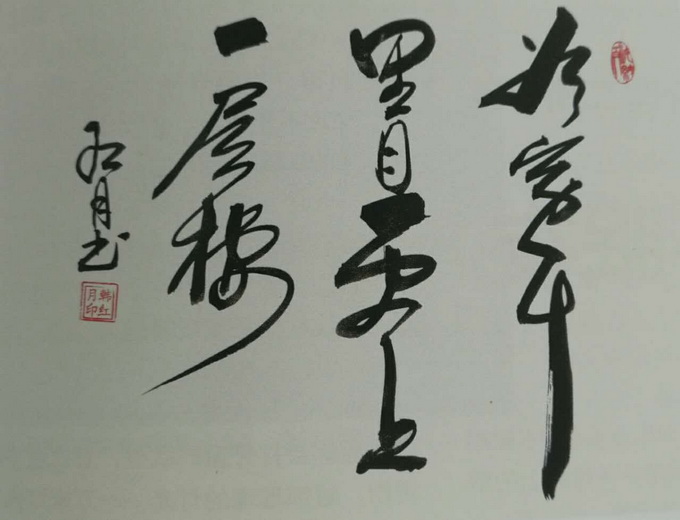 欲穷千
里目更上
一层楼
红月书
韩红月印